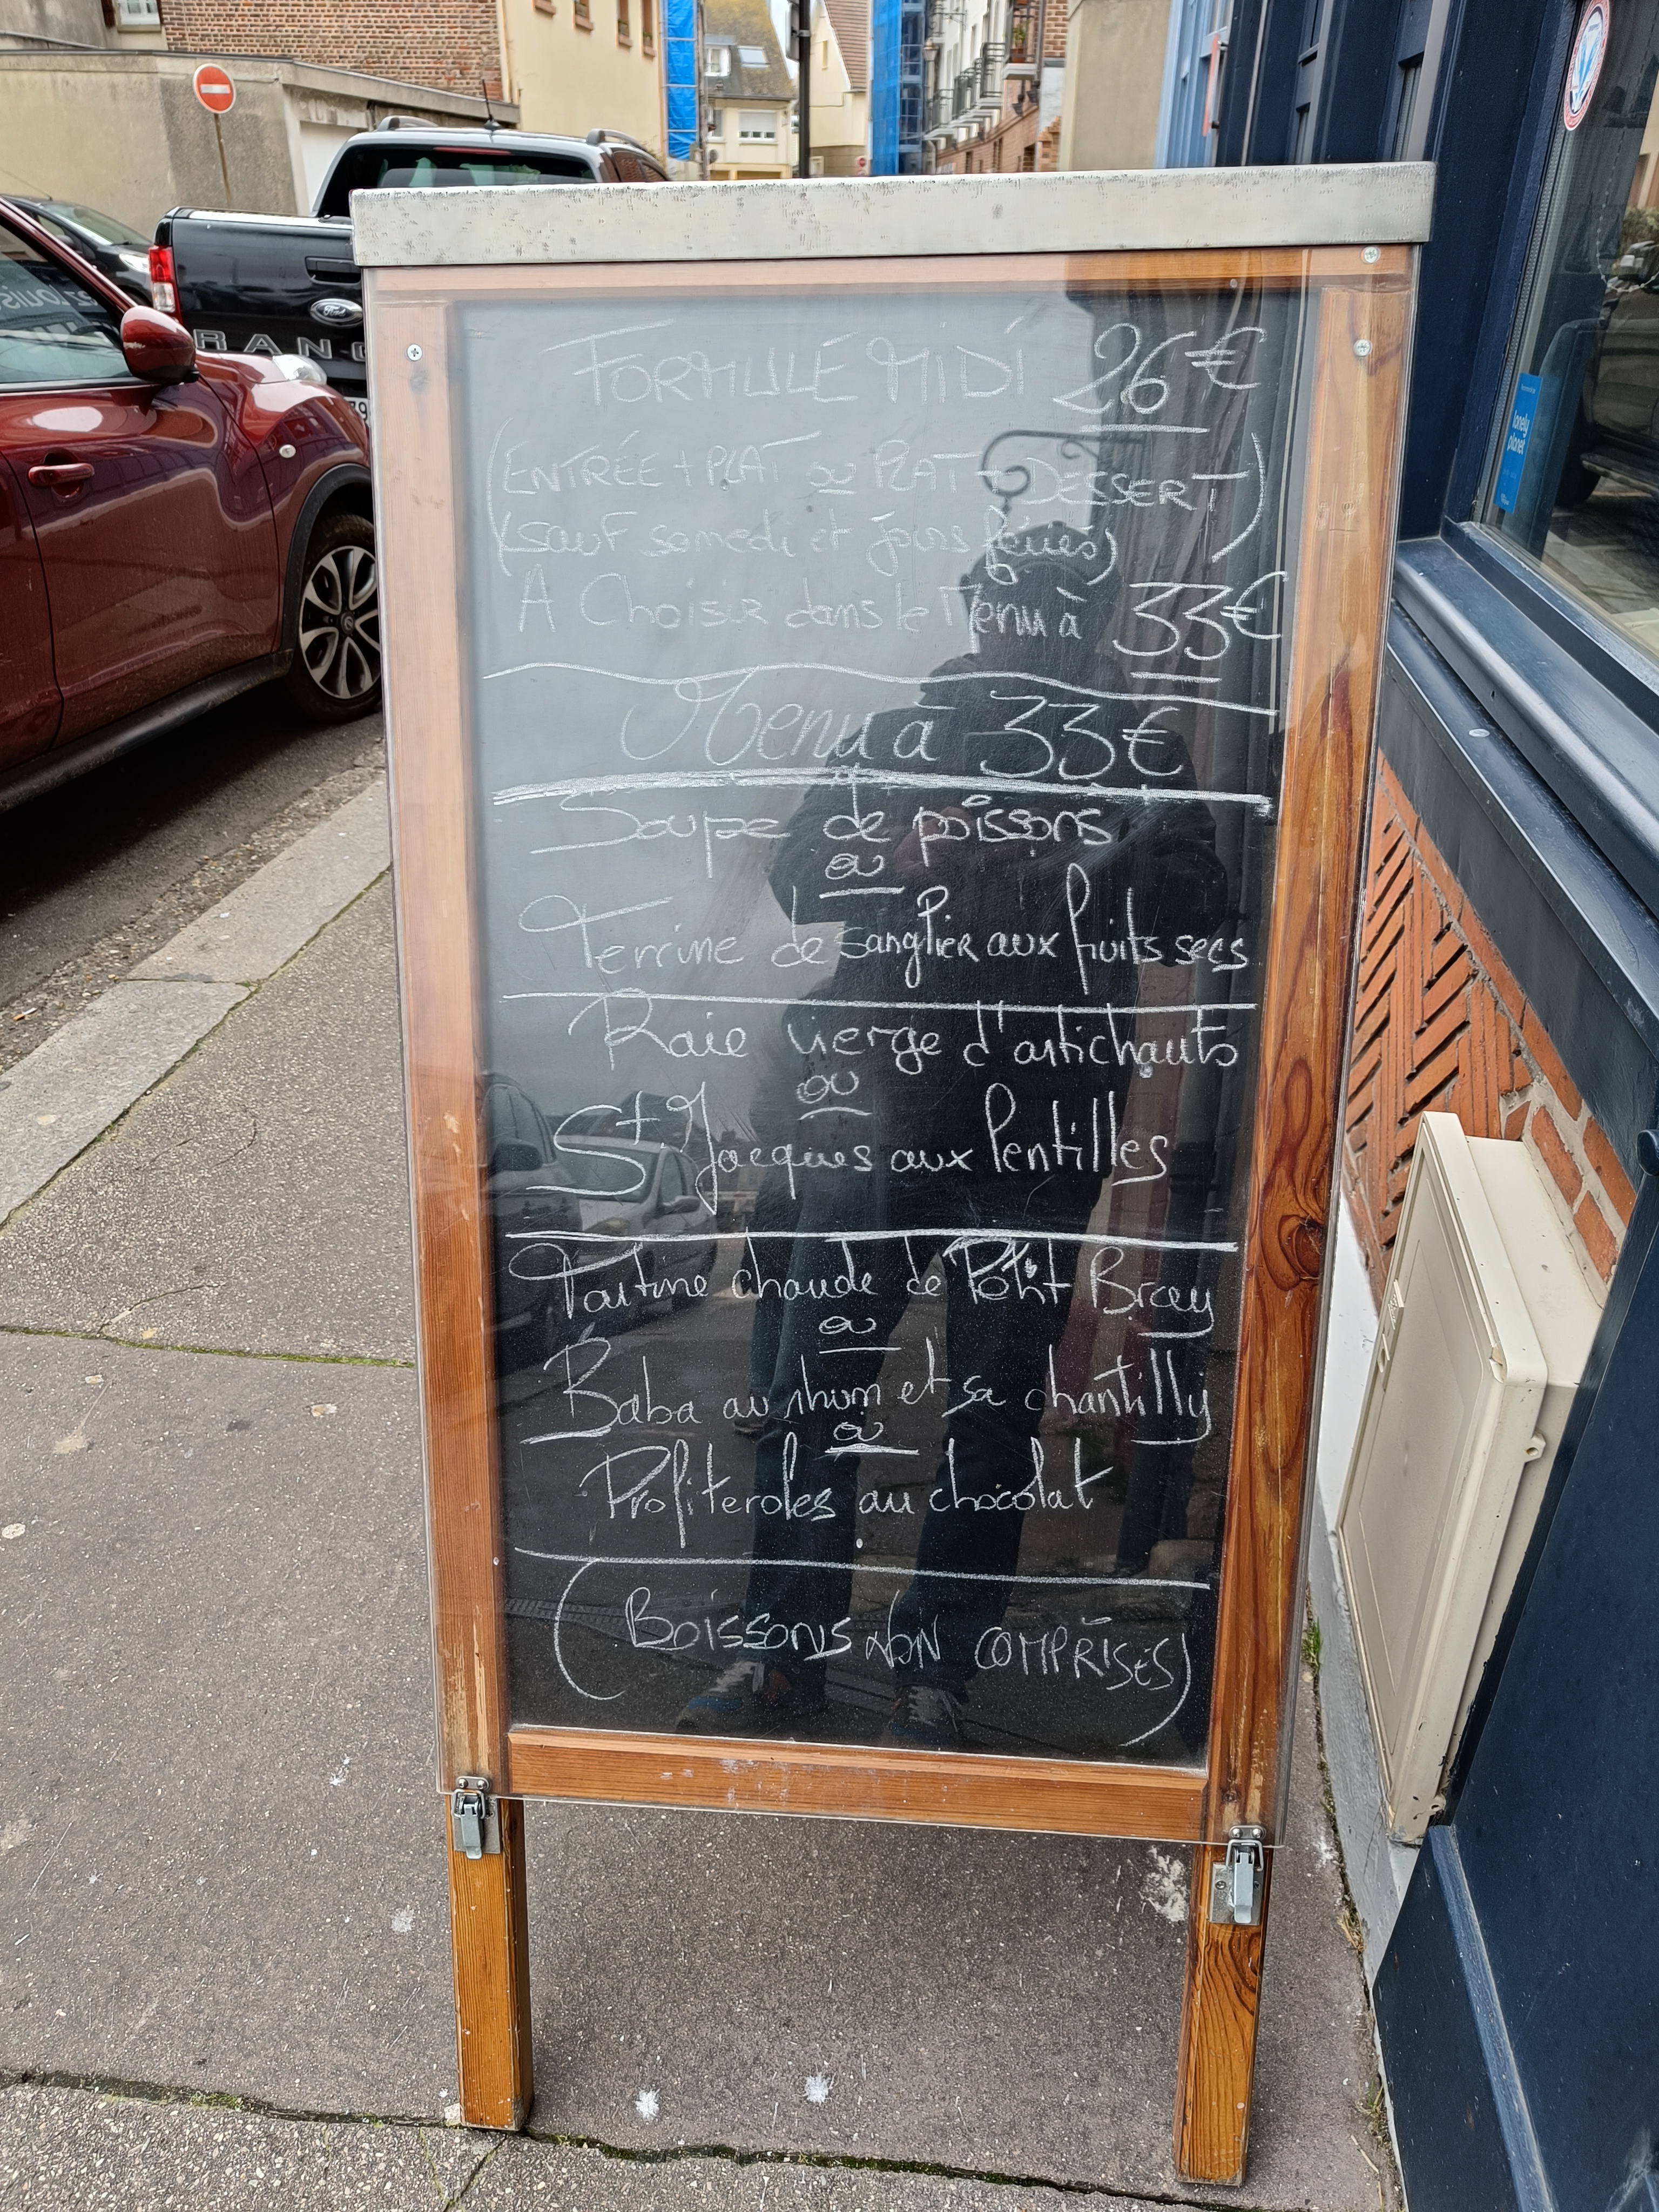 FORMULE MIDI 26€
(ENTRÉE + PLAT ou PLAT + DESSERT)
(sauf samedi et jours fériés)
A Choisir dans le Menu à 33€
Menu à 33€
Soupe de poissons
ou
Terrine de sanglier aux fruits secs
Raie vierge d'artichauts
ou
St. Jacques aux lentilles
Tartine chaude de Ptit Bray
ou
Baba au rhum et sa chantilly
ou
Profiteroles au chocolat
(BOISSONS NON COMPRISES)
Ford
RANG
lonely
planet